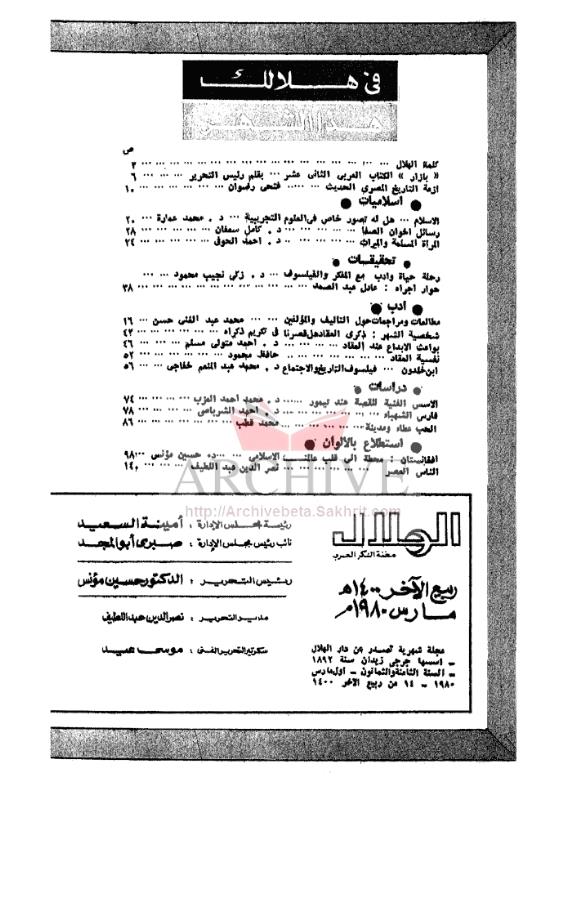 فى هلالك
هذا الشهر
ص
كلمة الهلال ... ٣
« بازار » الكتاب العربى الثانى عشر ... بقلم رئيس التحرير ... ٦
ازمة التاريخ المصرى الحديث ... فتحى رضوان ... ١٠
● اسلاميات ●
الاسلام ... هل له تصور خاص فى العلوم التجريبية ... د . محمد عمارة ... ٢٠
رسائل اخوان الصفا ... د . كامل سعفان ... ٢٨
المرأة المسلمة والميراث ... د . احمد الحوفى ... ٣٤
● تحقيقات ●
رحلة حياة وادب مع المفكر والفيلسوف ... د . زكى نجيب محمود ...
حوار اجراه : عادل عبد الصمد ... ٣٨
● أدب ●
مطالعات ومراجعات حول التاليف والمؤلفين ... محمد عبد الغنى حسن ... ١٦
شخصية الشهر : ذكرى العقاد هل قصرنا فى تكريم ذكراه ... ٤٣
بواعث الابداع عند العقاد ... د . احمد متولى مسلم ... ٤٦
نفسية العقاد ... حافظ محمود ... ٥٢
ابن خلدون ... فيلسوف التاريخ والاجتماع د . محمد عبد المنعم خفاجى ... ٥٦
● دراسات ●
الاسس الفنية للقصة عند تيمور ... د . محمد احمد العزب ... ٧٤
فارس الشهباء ... د . احمد الشرباصى ... ٧٨
الحب عطاء ومدينة ... محمد قطب ... ٨٦
● استطلاع بالالوان ●
افغانستان : محطة الى قلب عالمنا الاسلامى ... د . حسين مؤنس ... ٩٨
الناس العصر ... نصر الدين عبد اللطيف ... ١٤٠
ARCHIVE
http://Archivebeta.Sakhrit.com
الهلال
مجلة الفكر العربى
ربيع الآخر ١٤٠٠ هـ
مارس ١٩٨٠ م
مجلة شهرية تصدر عن دار الهلال
ـ اسسها جرجى زيدان سنة ١٨٩٢
ـ السنة الثامنة والثمانون ـ اول مارس
١٩٨٠ ـ ١٤ من ربيع الآخر ١٤٠٠
رئيسة مجلس الإدارة : أمينة السعيد
نائب رئيس مجلس الإدارة : صبرى أبو المجد
رئيس التحرير : الدكتور حسين مؤنس
مدير التحرير : نصر الدين عبد اللطيف
سكرتير التحرير الفنى : موسى عيد